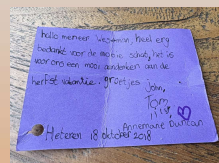 hallo meneer Westmijn, heel erg
bedankt voor de mooie schat, het is
voor ons een mooi aandenken aan de
herfst vakantie. groetjes
John,
Tom
Annemarie Duncan
Heteren 18 oktober 2018